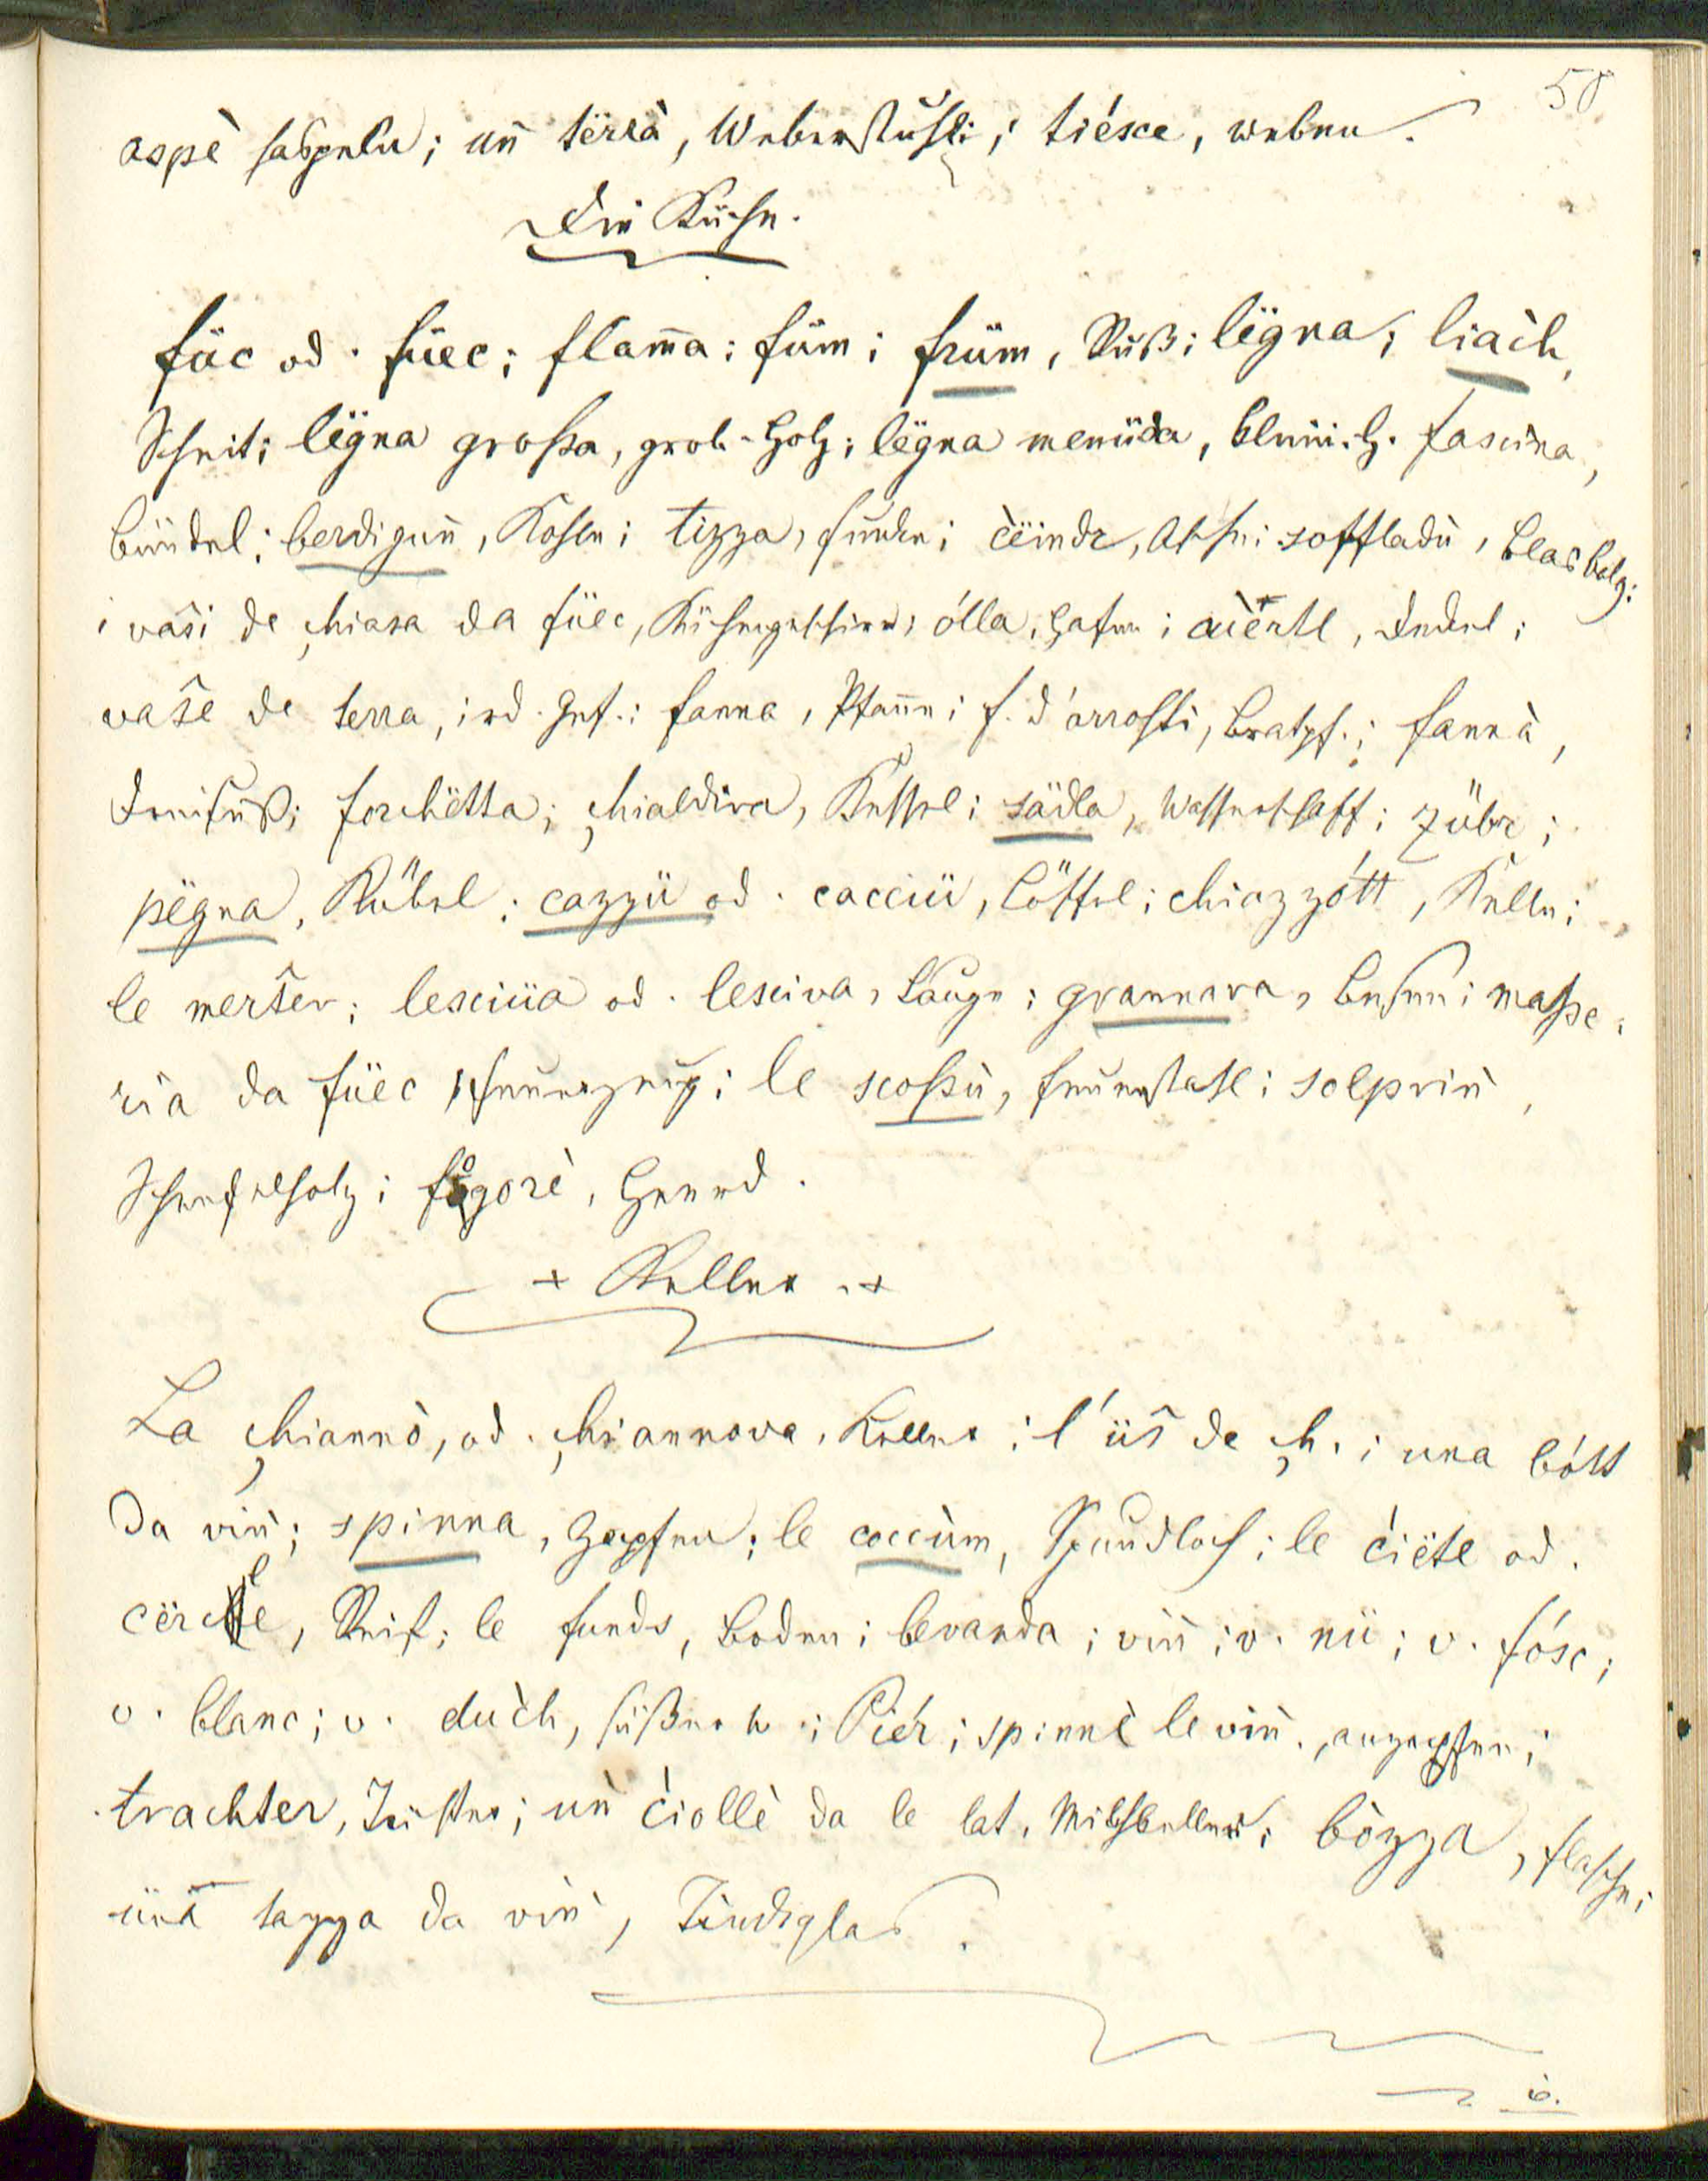 58
aspè haspeln; uñ tërrà, Weberstuhl; tiésce, weben.
Die Küche.
füc od. füec; flam̄a; füm; früm, Ruß; lëgna; liach,
Scheit; lëgna großa, grob-Holz; lëgna menüda, klein. H. fascina,
Bündel; berdiguñ, Kohle; tizza, Funke; c̀ëindr, Asche; soffladù, Blasbalg;
i vaŝi de çhiasa da füec, Küchengeschirr; ólla, Hafen; Deckel;
vaŝe de terra, ird. Gef.; fanna, Pfan̄e; f. d'arrosti, Bratpf.; fannà,
Dreifuß; forchëtta; çhialdira, Kessel; sädla, Wasserschaff; zübr;
pëgna, Kübel; cazzü od. cacciü, Löffel; chiazzótt, Kelle;
le merŝer; lesciüa od. lesciva, Lauge; grannara, Besen; maße,
ria da füec Feuerzeug; le scoßù, Feuerstahl; solpriǹ,
Schwefelholz; fogorè, Heerd.
+ Keller. +
La çhiannò, od. çhiannova, Keller; l'üŝ de çh.; una bótt
da viǹ; spinna, Zapfen; le coccùm, Spundloch; le ćiëtl od.
cërcle, Reif; le funds, Boden; bevanda; viñ; v. nü; v. fósc;
v. blanc; v. duc̀h, süßer W.; Piér; spinnè le viñ, anzapfen;
trachter, Trichter; uǹ c̀iollè da le lat, Milchkeller; bòzza, Flasche;
üna tazza da viǹ, Trinkglas.